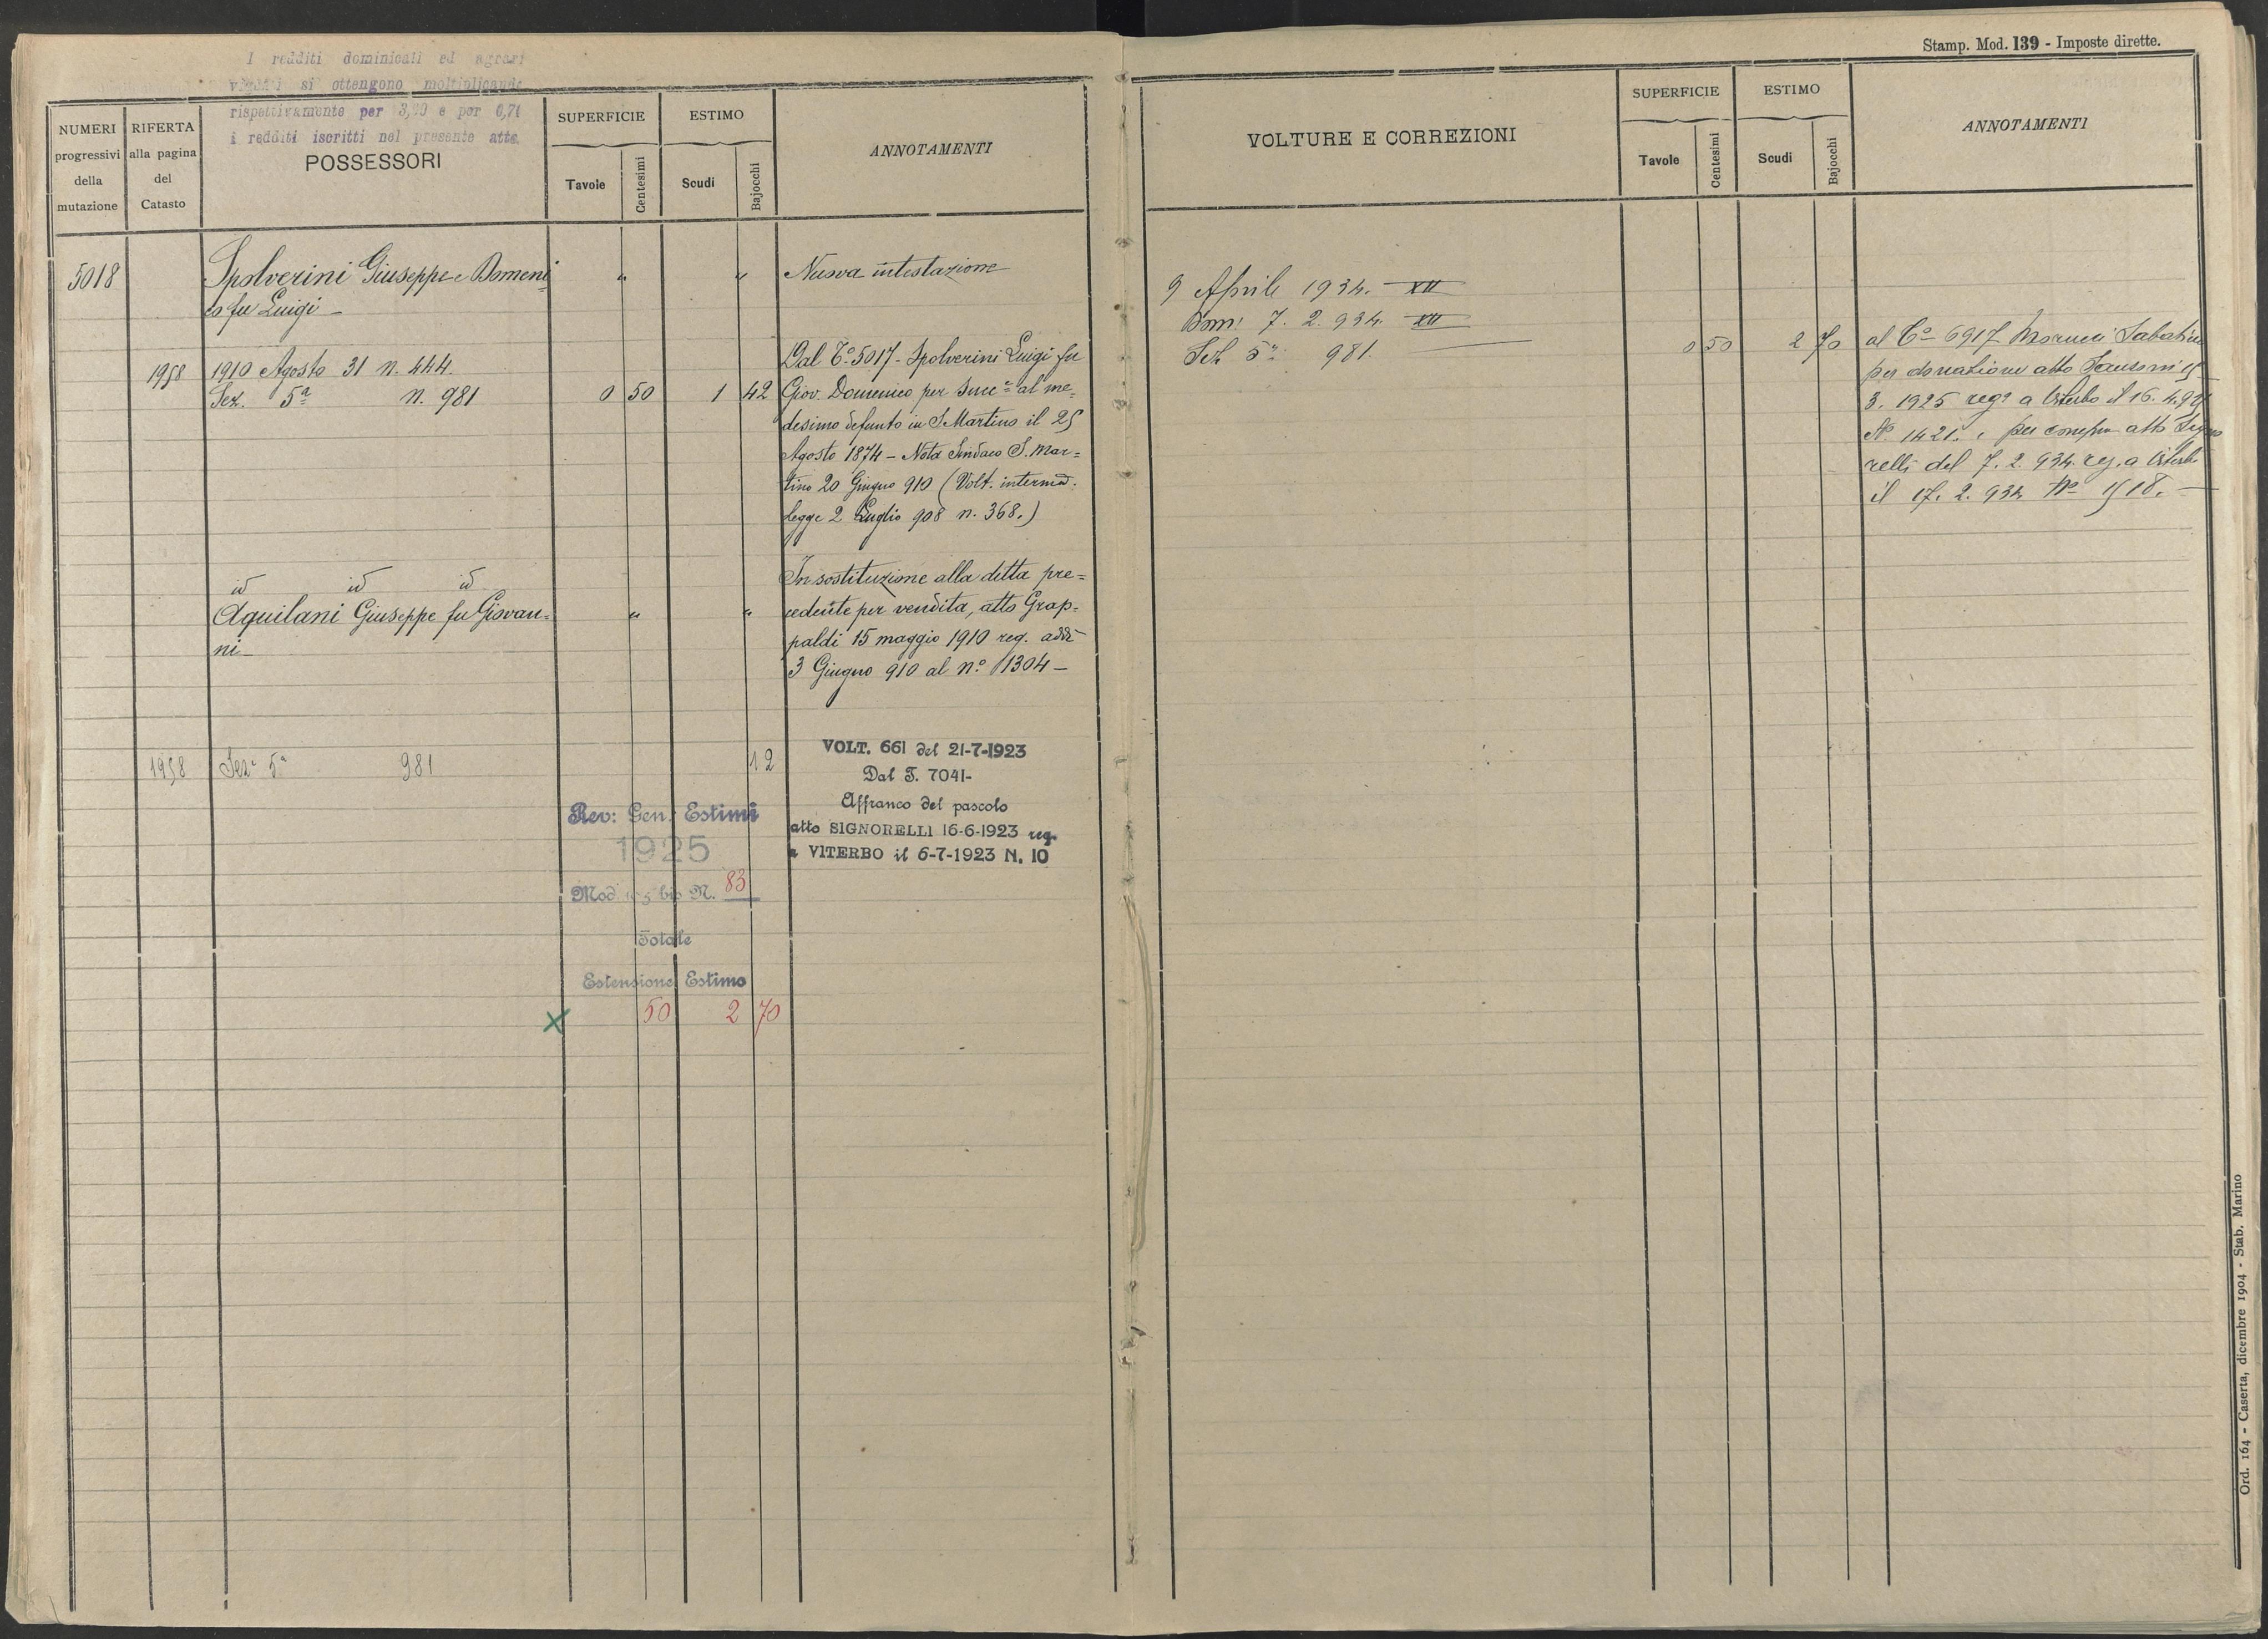 I redditi dominicali ed agrari
si ottengono moltiplicando
rispettivamente per e per 0,71
i redditi iscritti nel presente atto
NUMERI
progressivi
della
mutazione
RIFERTA
alla pagina
del
Catasto
POSSESSORI
SUPERFICIE
Tavole
Centesimi
ESTIMO
Scudi
Bajocchi
ANNOTAMENTI
5018
Spolverini Giuseppe e Domeni=
co fu Luigi -
" "
Nuova intestazione
1958
1910 Agosto 31 n. 444.
Sez. 5ª n. 981
0 50 1 42
Dal Cº. 5017 - Spolverini Luigi fu
Giov. Domenico per succ.e al me=
desimo defunto in S. Martino il 25
Agosto 1874 - Nota Sindaco S. Mar=
tino 20 Giugno 910 (Volt. intermd.
legge 2 Luglio 908 n. 368.)
id id id
Aquilani Giuseppe fu Giovan=
ni -
" "
In sostituzione alla ditta pre=
cedente per vendita, atto Grap=
paldi 15 maggio 1910 reg. addì
3 Giugno 910 al nº. 1304 -
1958
Sez. 5ª 981
12
VOLT. 661 del 21-7-1923
Dal T. 7041-
Affranco del pascolo
atto SIGNORELLI 16-6-1923 reg.
a VITERBO il 6-7-1923 N. 10
Rev: Gen. Estimi
1925
Mod bis N. 83
Totale
Estensione Estimo
X 50 2 70
Stamp. Mod. 139 - Imposte dirette.
VOLTURE E CORREZIONI
SUPERFICIE
Tavole
Centesimi
ESTIMO
Scudi
Bajocchi
ANNOTAMENTI
9 Aprile 1934. XII
7. 2. 934. XII
Sez 5ª 981.
0 50 2 70
al Cº 6917 Morucci Sabatino
per donazione atto
3. 1925 regº a Viterbo il 16. 4. 925
Nº 1421. e per atto Signo
relli del 7. 2. 934. reg. a Viterbo
il 17. 2. 934 Nº 1518. -
Ord. 164 - Caserta, dicembre 1904 - Stab. Marino